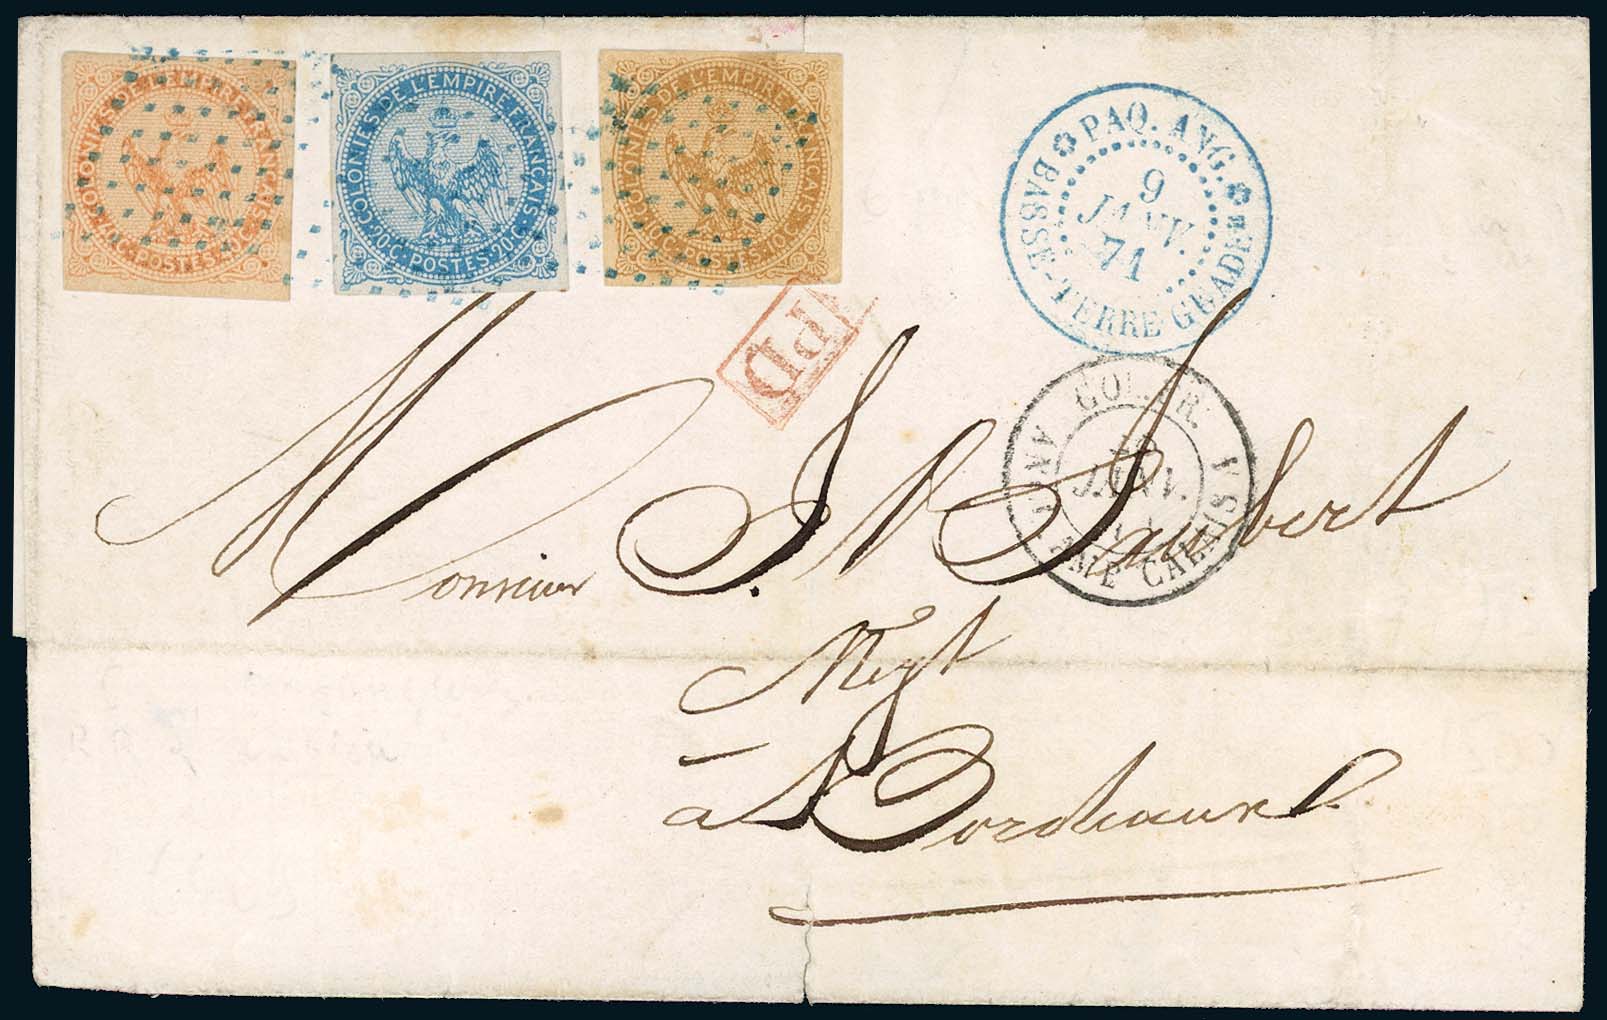 COLONIES DE L'EMPIRE FRANÇAIS · 40C · POSTES · 40C ·
COLONIES DE L'EMPIRE FRANÇAIS · 20C · POSTES · 20C ·
COLONIES DE L'EMPIRE FRANÇAIS · 10C · POSTES · 10C ·
PAQ. ANG.
9
JANV.
71
BASSE-TERRE GUADE
PD
COL.
JANV.
AMB CALAIS
Monsieur J. Jaubert
Negt
à Bordeaux